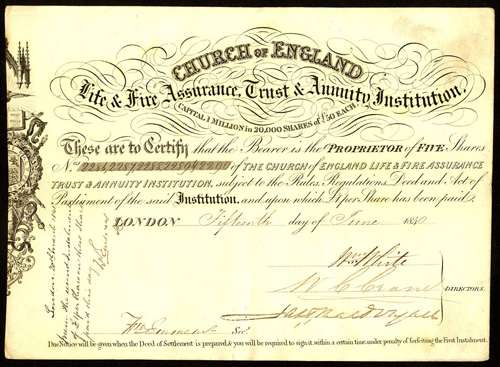 CHURCH OF ENGLAND
Life & Fire Assurance, Trust & Annuity Institution.
CAPITAL 1 MILLION in 20,000 SHARES of £50 EACH
These are to Certify that the Bearer is the PROPRIETOR of FIVE Shares
Nos. 2286,2287,2288,2289&2290 of THE CHURCH of ENGLAND LIFE & FIRE ASSURANCE
TRUST & ANNUITY INSTITUTION, subject to the Rules, Regulations, Deed and Act of
Parliament of the said Institution, and upon which £ per Share has been paid.
LONDON Fifteenth day of June 1840
Wm. White
W C Crane
DIRECTORS.
Secy.
Due Notice will be given when the Deed of Settlement is prepared, & you will be required to sign it, within a certain time, under penalty of forfeiting the First Instalment.